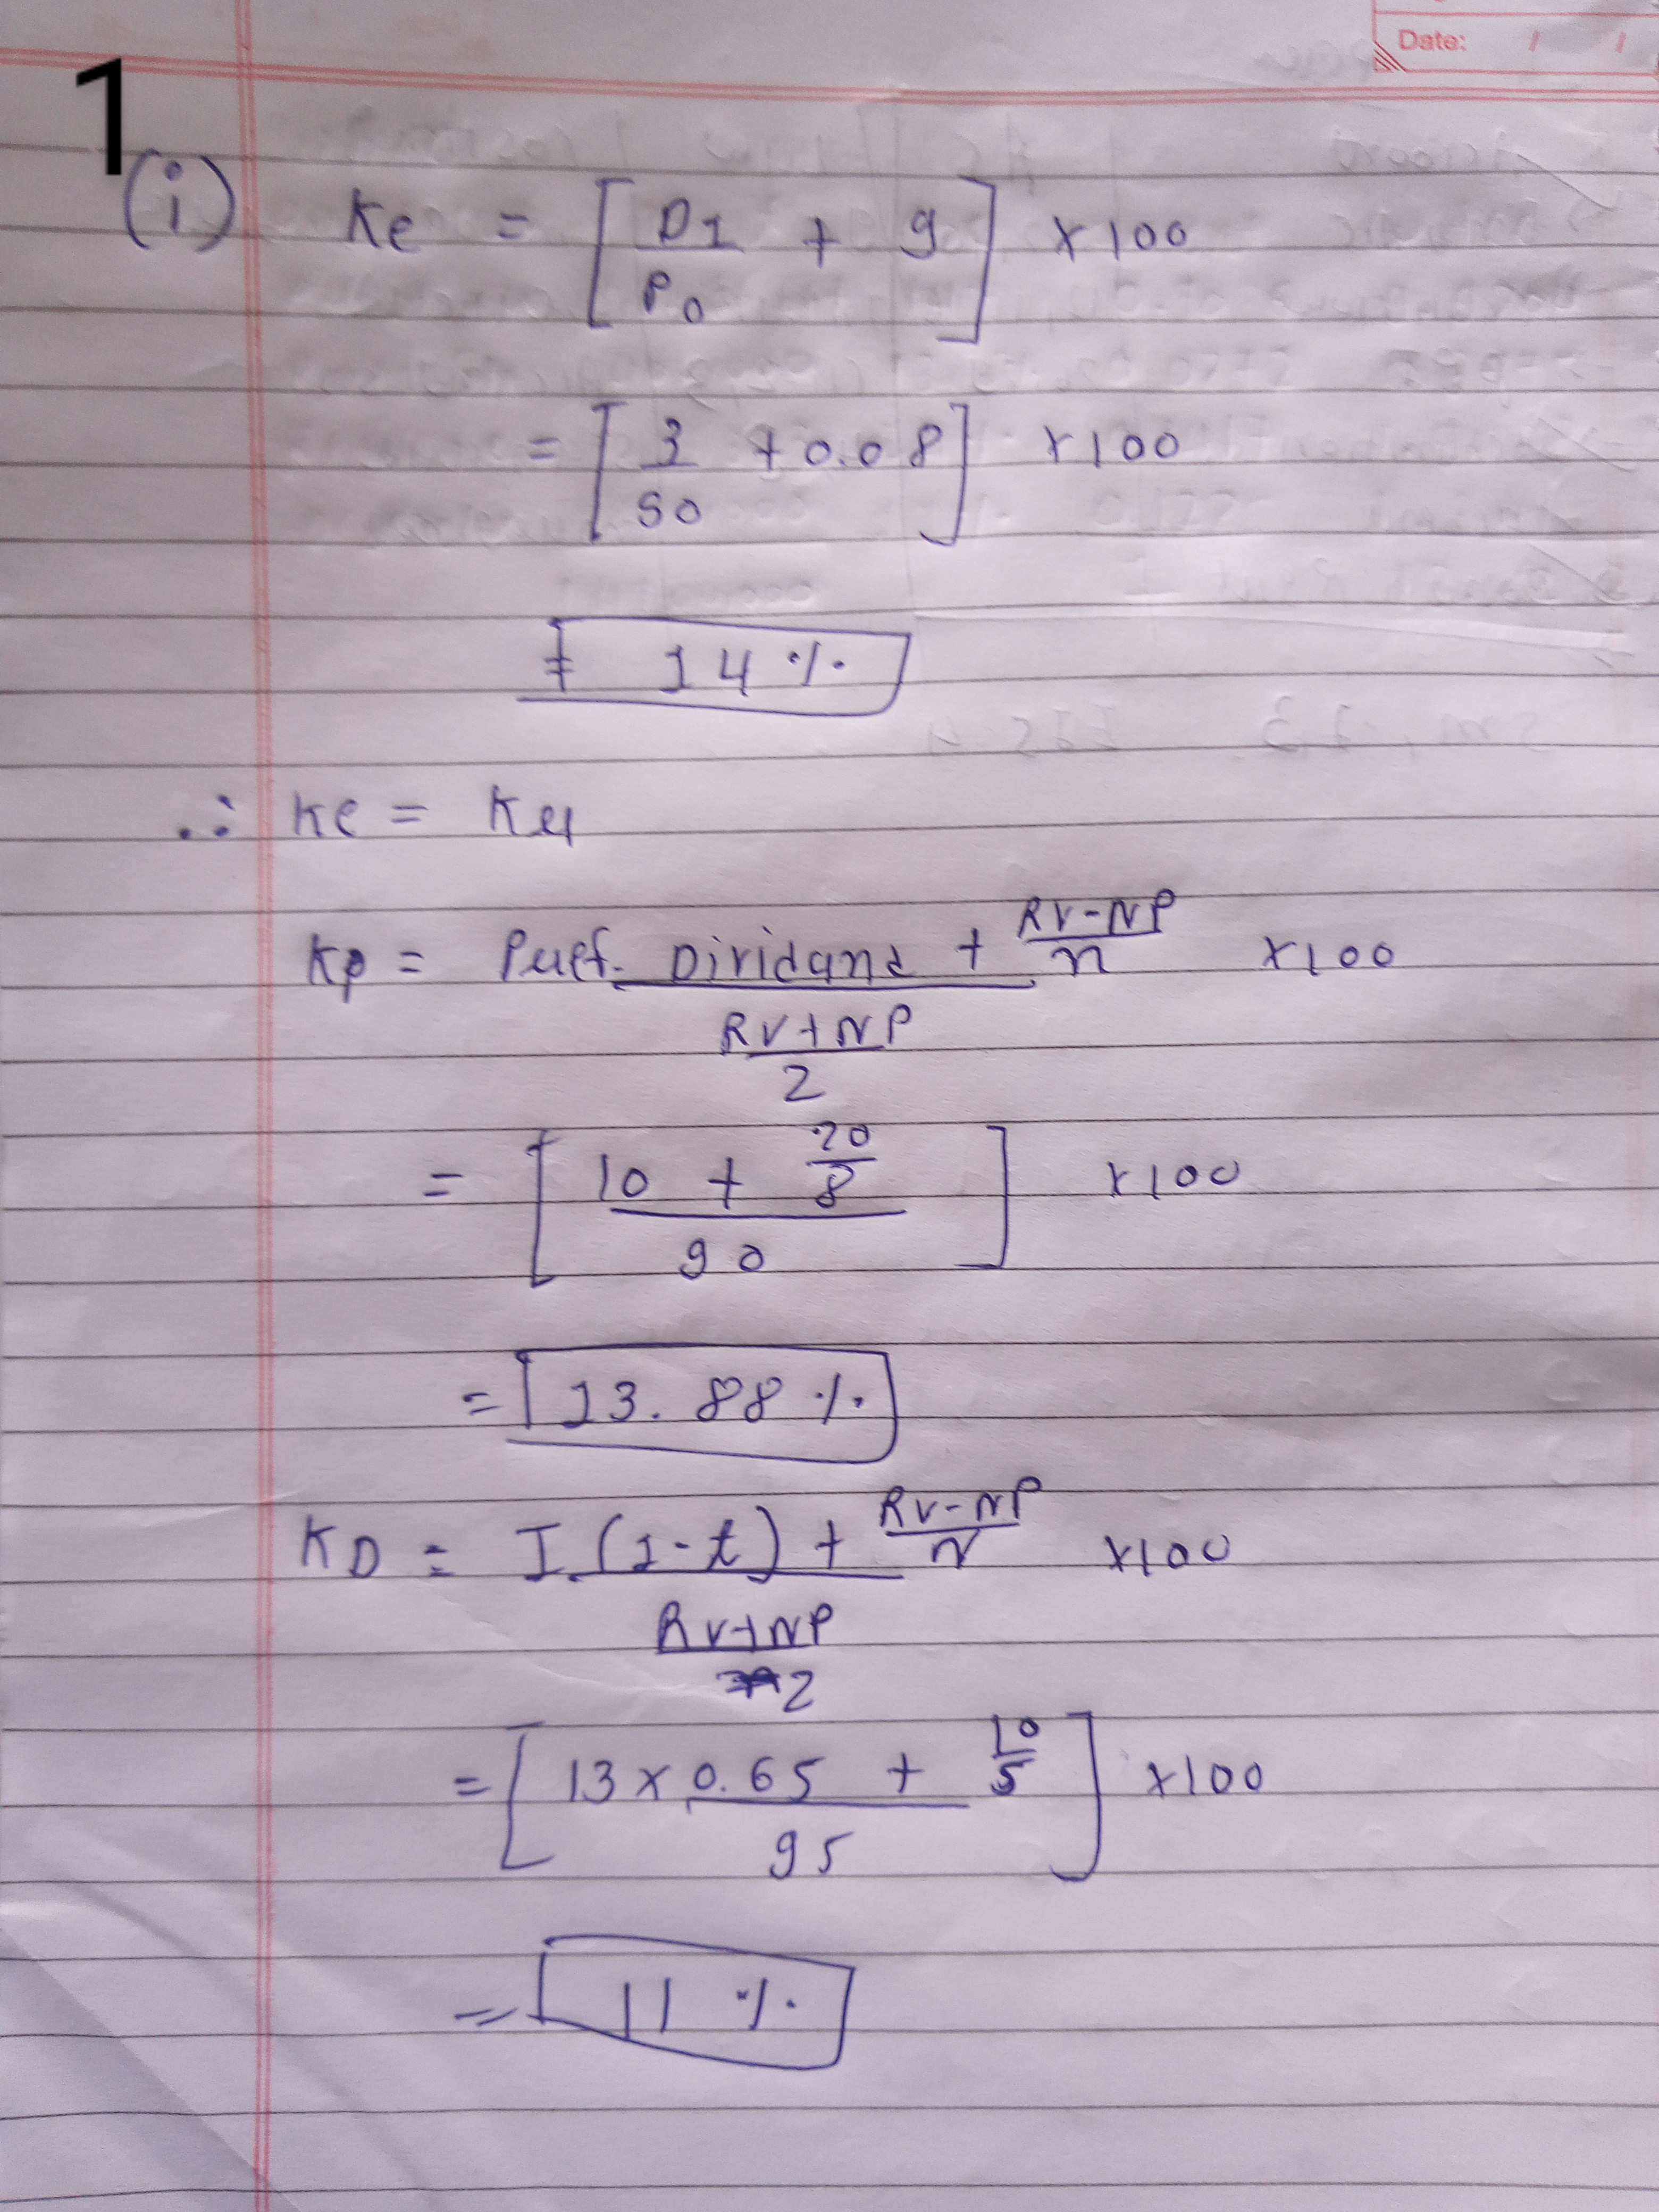 Date: / /
1
(i) Ke = [D1/P0 + g] × 100
= [3/50 + 0.08] × 100
= 14 %
∴ Ke = Ker
Kp = Pref. Dividand + RV-NP/n × 100
RV+NP/2
= [10 + 20/8 / 90] × 100
= 13.88 %
KD = I.(1-t) + RV-NP/N × 100
RV+NP/2
= [13 × 0.65 + 10/5 / 95] × 100
= 11 %